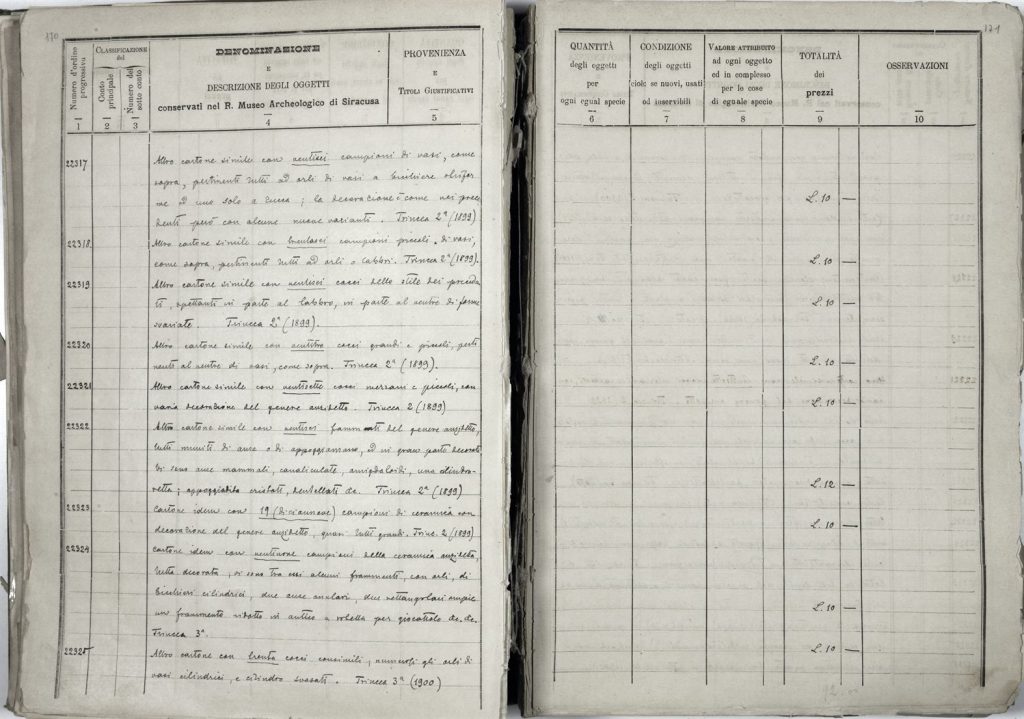 170
Numero d'ordine progressivo
CLASSIFICAZIONE
del
Conto principale
Numero del sotto conto
DENOMINAZIONE
E
DESCRIZIONE DEGLI OGGETTI
conservati nel R. Museo Archeologico di Siracusa
PROVENIENZA
E
TITOLI GIUSTIFICATIVI
1
2
3
4
5
22317
Altro cartone simile con ventisei campioni di vasi, come
sopra, pertinenti tutti ad orli di vasi a bicchiere
me ad uno solo a ; la decorazione è come nei prece
denti però con alcune nuove varianti. Trincea 2ª (1899)
22318
Altro cartone simile con trentasei campioni piccoli di vasi,
come sopra, pertinenti tutti ad orli o labbri. Trincea 2ª (1899).
22319
Altro cartone simile con ventisei cocci dello stile dei preceden
ti, spettanti in parte al labbro, in parte al ventre di forme
svariate. Trincea 2ª (1899).
22320
Altro cartone simile con ventitre cocci grandi e piccoli, perti
nenti al ventre di vasi, come sopra. Trincea 2ª (1899).
22321
Altro cartone simile con ventisette cocci mezzani e piccoli, con
varia decorazione del genere anzidetto. Trincea 2 (1899)
22322
Altro cartone simile con ventisei frammenti del genere anzidetto,
tutti muniti di anse o di , ed in gran parte decorati
Vi sono anse mammali, canaliculate, amigdaloidi, una cilindro-
retta; cristati, dentellati &c. Trincea 2ª (1899)
22323
Cartone idem con 19 (diciannove) campioni di ceramica con
decorazione del genere anzidetto, quasi tutti grandi. Trinc. 2 (1899)
22324
Cartone idem con ventinove campioni della ceramica anzidetta,
tutta decorata, vi sono tra essi alcuni frammenti, con orli, di
bicchieri cilindrici, due anse anulari, due rettangolari
un frammento ridotto in antico a rotella per giocattolo &c. &c.
Trincea 3ª.
22325
Altro cartone con trenta cocci consimili, numerosi gli orli di
vasi cilindrici, e cilindro svasati. Trincea 3ª (1900)
171
QUANTITÀ
degli oggetti
per
ogni egual specie
CONDIZIONE
degli oggetti
cioè: se nuovi, usati
od inservibili
VALORE ATTRIBUITO
ad ogni oggetto
ed in complesso
per le cose
di eguale specie
TOTALITÀ
dei
prezzi
OSSERVAZIONI
6
7
8
9
10
L. 10 —
L. 10 —
L. 10 —
L. 10 —
L. 10 —
L. 12 —
L. 10 —
L. 10 —
L. 10 —